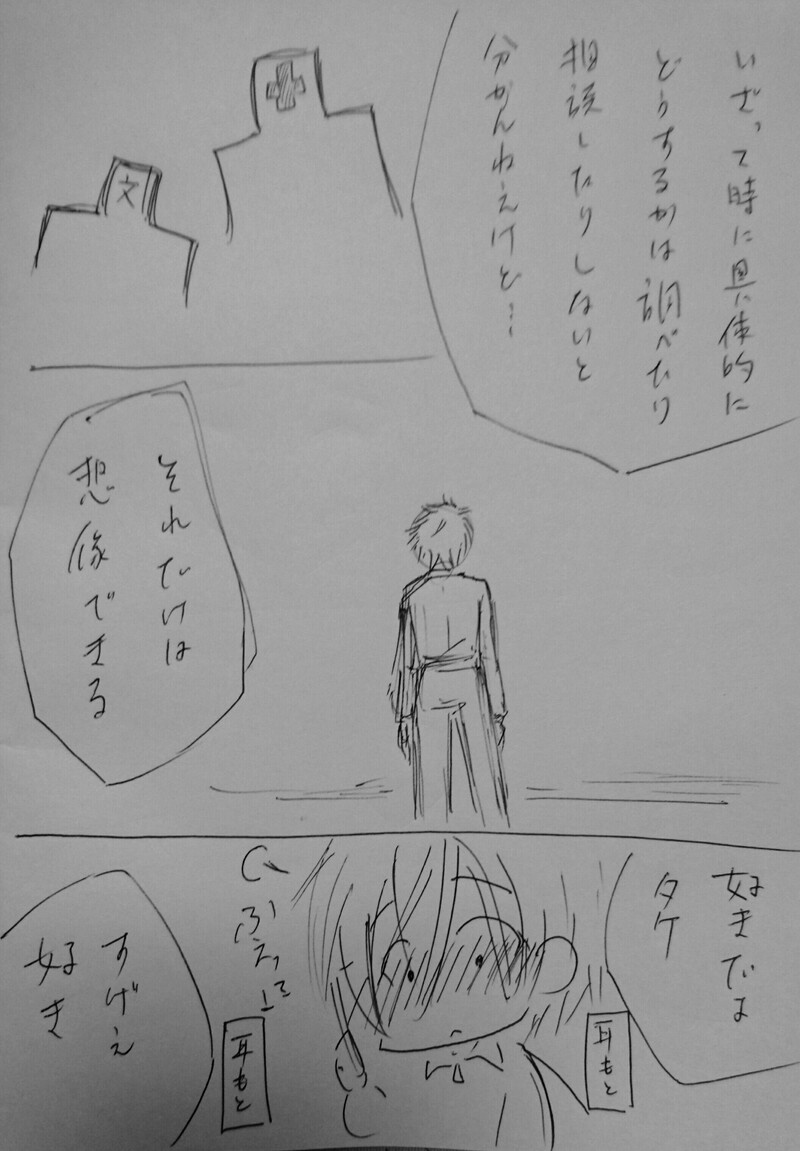 いざって時に具体的に
どうするかは調べたり
相談したりしないと
分かんねえけど…
文
それだけは
想像できる
好きだよ
タケ
耳もと
ふえっ
すげえ
好き
耳もと